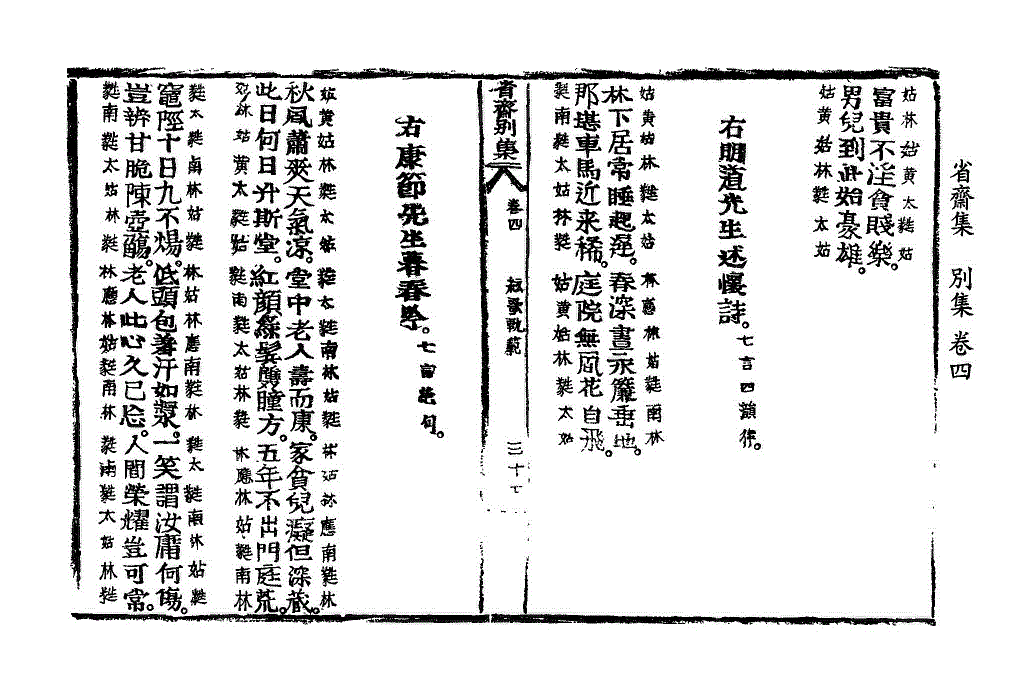 省齋集 別集 卷四
姑林姑黃太蕤姑
富貴不淫貧賤樂。
男兒到此始豪雄。
姑黃姑林蕤太姑
右明道先生述懷詩。七言四韻律。
姑黃姑林蕤太姑 林應林姑蕤南林
林下居常睡起遲。春深晝永簾垂地。
那堪車馬近来稀。庭院無風花自飛。
蕤南蕤太姑林蕤 姑黃姑林蕤太姑
省齋別集 卷四 絃歌軌範 三十七
右康節先生暮春吟。七言絶句。
姑黃姑林蕤太姑 蕤太蕤南林姑蕤 林姑林應南蕤林
秋風蕭爽天氣凉。堂中老人壽而康。家貧兒癡但深藏。
此日何日升斯堂。紅顔綠鬢雙瞳方。五年不出門庭荒。
姑林姑黃太蕤姑 蕤南蕤太姑林蕤 林應林姑蕤南林
蕤太蕤南林姑蕤 林姑林應南蕤林 蕤太蕤南林姑蕤
竈陘十日九不煬。低頭包羞汗如漿。一笑謂汝庸何傷。
豈辨甘脆陳壺觴。老人此心久已忘。人間榮耀豈可常。
蕤南蕤太姑林蕤 林應林姑蕤南林 蕤南蕤太姑林蕤